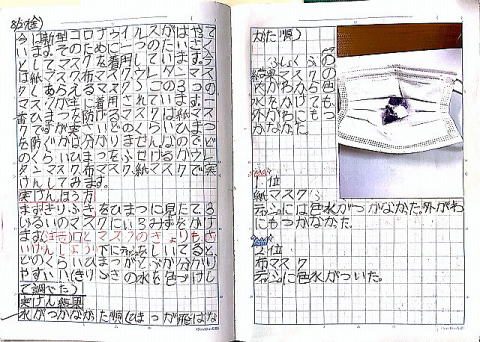 8/21(金)
今は新型コロナウイルスがはやって
います。そのために一つのたいさく
としてマスクを着用しています。マス
クは紙マスク、布マスク、ウレタンマス
マスクが主に着用されています。一
番ひまつを防げるマスクは紙マス
クですが実さいどのくらいひまつ
を防ぐかは分かりません。なので、ど
のくらいひまつをふせげるか
タンマスク布マスク、紙マスクで実
けんしてみます。
実けんほう方
まずきりふきをひまつに見たて3し
どのくらいひまつがとぶか分かり
やすい!!(きりふきの水を色つけし
て調べた)
実けん結果
水がつかなかった順(ひまつが飛ばな
かった順)
結果マスクの
内がわから色
水をかけても
外がわにもつ
かなかった。
1位
紙マスク
ティッシュには色水がつかなかった。外がわ
にもつかなかった。
2位
布マスク
ティッシュに色水がついた。